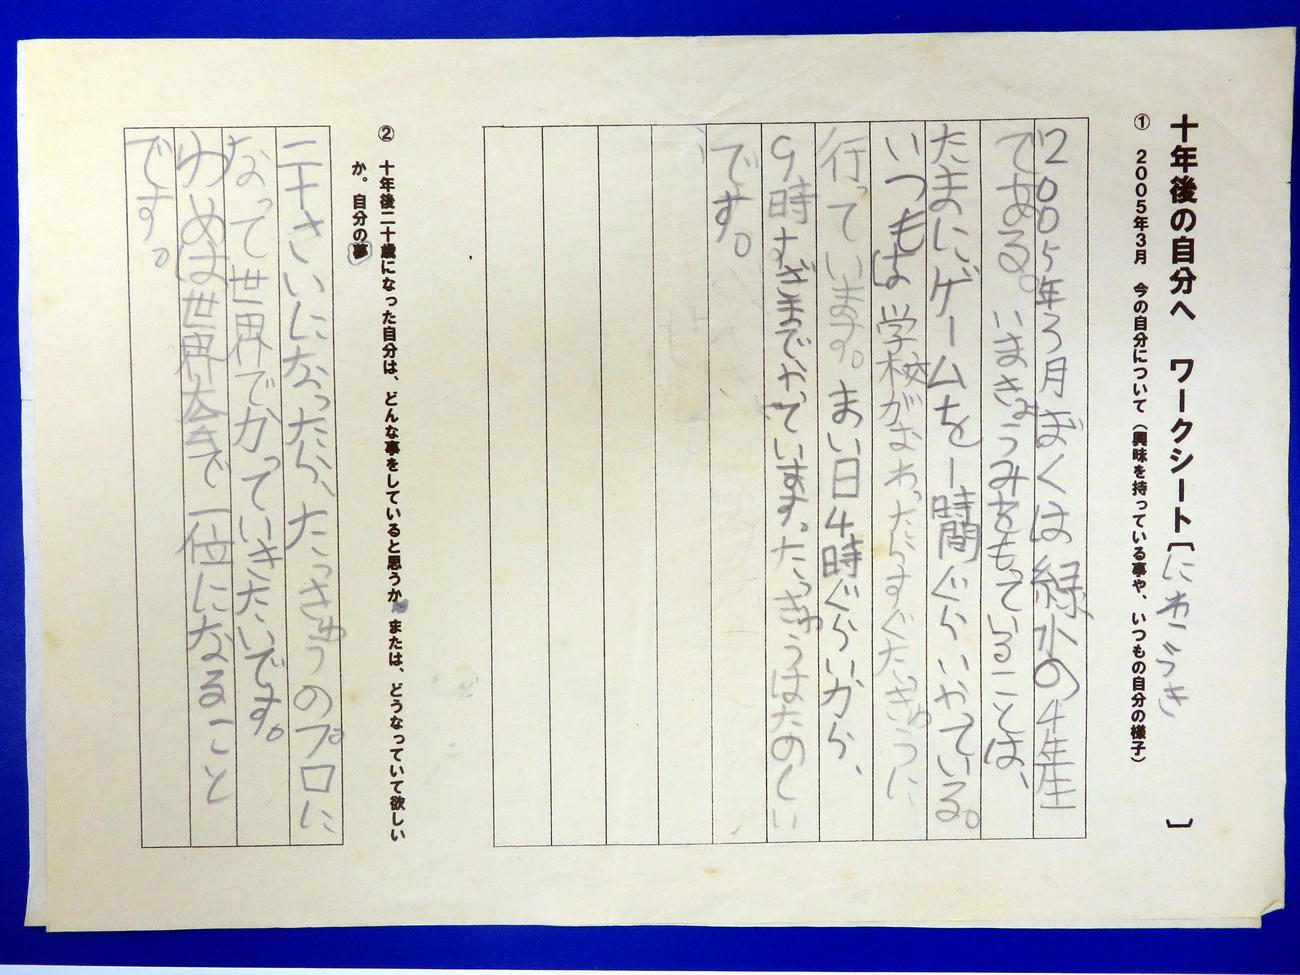 十年後の自分へ　ワークシート［にわ こうき　］
① 2005年3月　今の自分について（興味を持っている事や、いつもの自分の様子）
2005年3月ぼくは緑水の4年生
である。いまきょうみをもっていることは、
たまにゲームを1時間ぐらいやっている。
いつもは学校がおわったらすぐたっきゅうに
行っています。まい日4時ぐらいから、
9時すぎまでやっています。たっきゅうはたのしい
です。
② 十年後二十歳になった自分は、どんな事をしていると思うか。または、どうなっていて欲しい
か。自分の夢
二十さいになったら、たっきゅうのプロに
なって世界でかっていきたいです。
ゆめは世界大会で一位になること
です。